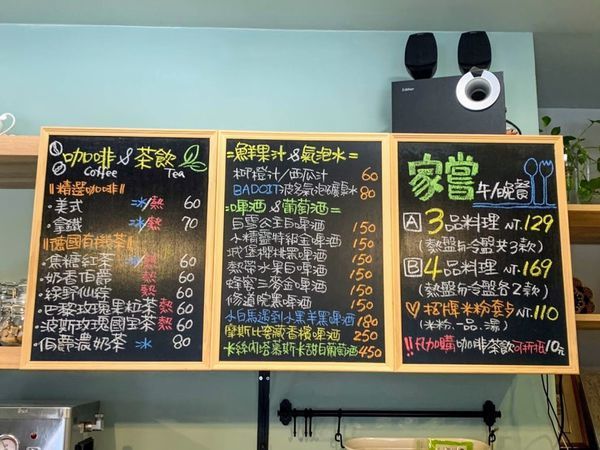 咖啡&茶飲
Coffee Tea
‼精選咖啡‼
·美式 冰/熱 60
·拿鐵 冰/熱 70
‼德國有機茶‼
·焦糖紅茶 冰/熱 60
·奶香伯爵 熱 60
·綠野仙蹤 熱 60
·巴黎玫瑰果粒茶 熱 60
·波斯玫瑰國宝茶 熱 60
·伯爵濃奶茶 冰 80
=鮮果汁&氣泡水=
柳橙汁/西瓜汁 60
BADOIT波多氣泡礦泉水 80
=啤酒&葡萄酒=
白雪公主白啤酒 150
小精靈特級金啤酒 150
城堡櫻桃黑啤酒 150
熱帶水果白啤酒 150
蜂蜜三麥金啤酒 150
修道院黑啤酒 150
小白馬遇到小黑羊黑啤酒 180
摩斯比奎藏香檳啤酒 250
卡絲內塔慕斯卡甜白葡萄酒 450
Edifier
家嘗 午/晚餐
A 3品料理 NT.129
(熱盤與冷盤共3款)
B 4品料理 NT.169
(熱盤與冷盤各2款)
♡招牌米粉套歺 NT.110
(米粉.一品.湯)
‼凡加購咖啡茶飲可折抵10元